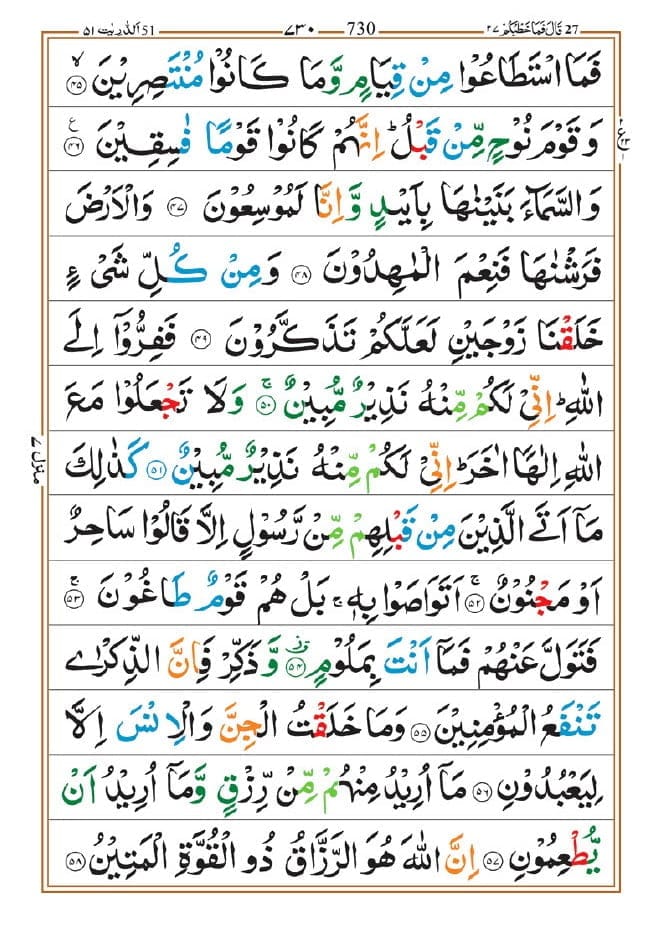 27 قَالَ فَمَا خَطْبُكُمْ ٢٧ 730 ٧٣٠ 51 اَلذّٰرِيٰت ٥١
فَمَا اسْتَطَاعُوْا مِنْ قِيَامٍ وَّمَا كَانُوْا مُنْتَصِرِيْنَ ۙ﴿٤٥﴾
وَ قَوْمَ نُوْحٍ مِّنْ قَبْلُ ؕ اِنَّهُمْ كَانُوْا قَوْمًا فٰسِقِيْنَ ﴿٤٦﴾ ع
وَالسَّمَآءَ بَنَيْنٰهَا بِاَيْىدٍ وَّاِنَّا لَمُوْسِعُوْنَ ﴿٤٧﴾ وَالْاَرْضَ
فَرَشْنٰهَا فَنِعْمَ الْمٰهِدُوْنَ ﴿٤٨﴾ وَمِنْ كُلِّ شَىْءٍ
خَلَقْنَا زَوْجَيْنِ لَعَلَّكُمْ تَذَكَّرُوْنَ ﴿٤٩﴾ فَفِرُّوْۤا اِلَى
اللّٰهِ ؕ اِنِّىْ لَكُمْ مِّنْهُ نَذِيْرٌ مُّبِيْنٌ ۚ﴿٥٠﴾ وَلَا تَجْعَلُوْا مَعَ
اللّٰهِ اِلٰهًا اٰخَرَ ؕ اِنِّىْ لَكُمْ مِّنْهُ نَذِيْرٌ مُّبِيْنٌ ﴿٥١﴾ كَذٰلِكَ
مَاۤ اَتَى الَّذِيْنَ مِنْ قَبْلِهِمْ مِّنْ رَّسُوْلٍ اِلَّا قَالُوْا سَاحِرٌ
اَوْ مَجْنُوْنٌ ۚ﴿٥٢﴾ اَتَوَاصَوْا بِهٖ ۚ بَلْ هُمْ قَوْمٌ طَاغُوْنَ ۚ﴿٥٣﴾
فَتَوَلَّ عَنْهُمْ فَمَاۤ اَنْتَ بِمَلُوْمٍ ﴿٥٤﴾ وَّذَكِّرْ فَاِنَّ الذِّكْرٰى
تَنْفَعُ الْمُؤْمِنِيْنَ ﴿٥٥﴾ وَمَا خَلَقْتُ الْجِنَّ وَالْاِنْسَ اِلَّا
لِيَعْبُدُوْنِ ﴿٥٦﴾ مَاۤ اُرِيْدُ مِنْهُمْ مِّنْ رِّزْقٍ وَّمَاۤ اُرِيْدُ اَنْ
يُّطْعِمُوْنِ ﴿٥٧﴾ اِنَّ اللّٰهَ هُوَ الرَّزَّاقُ ذُو الْقُوَّةِ الْمَتِيْنُ ﴿٥٨﴾
منزل ٧